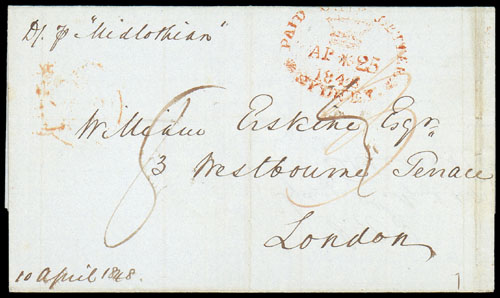 D/. p "Midlothian"
PAID SHIP LETTER
AP * 25
1848
SYDNEY
William Erskine Esqr
3 Westbourne Terrace
London
10 April 1848.
1